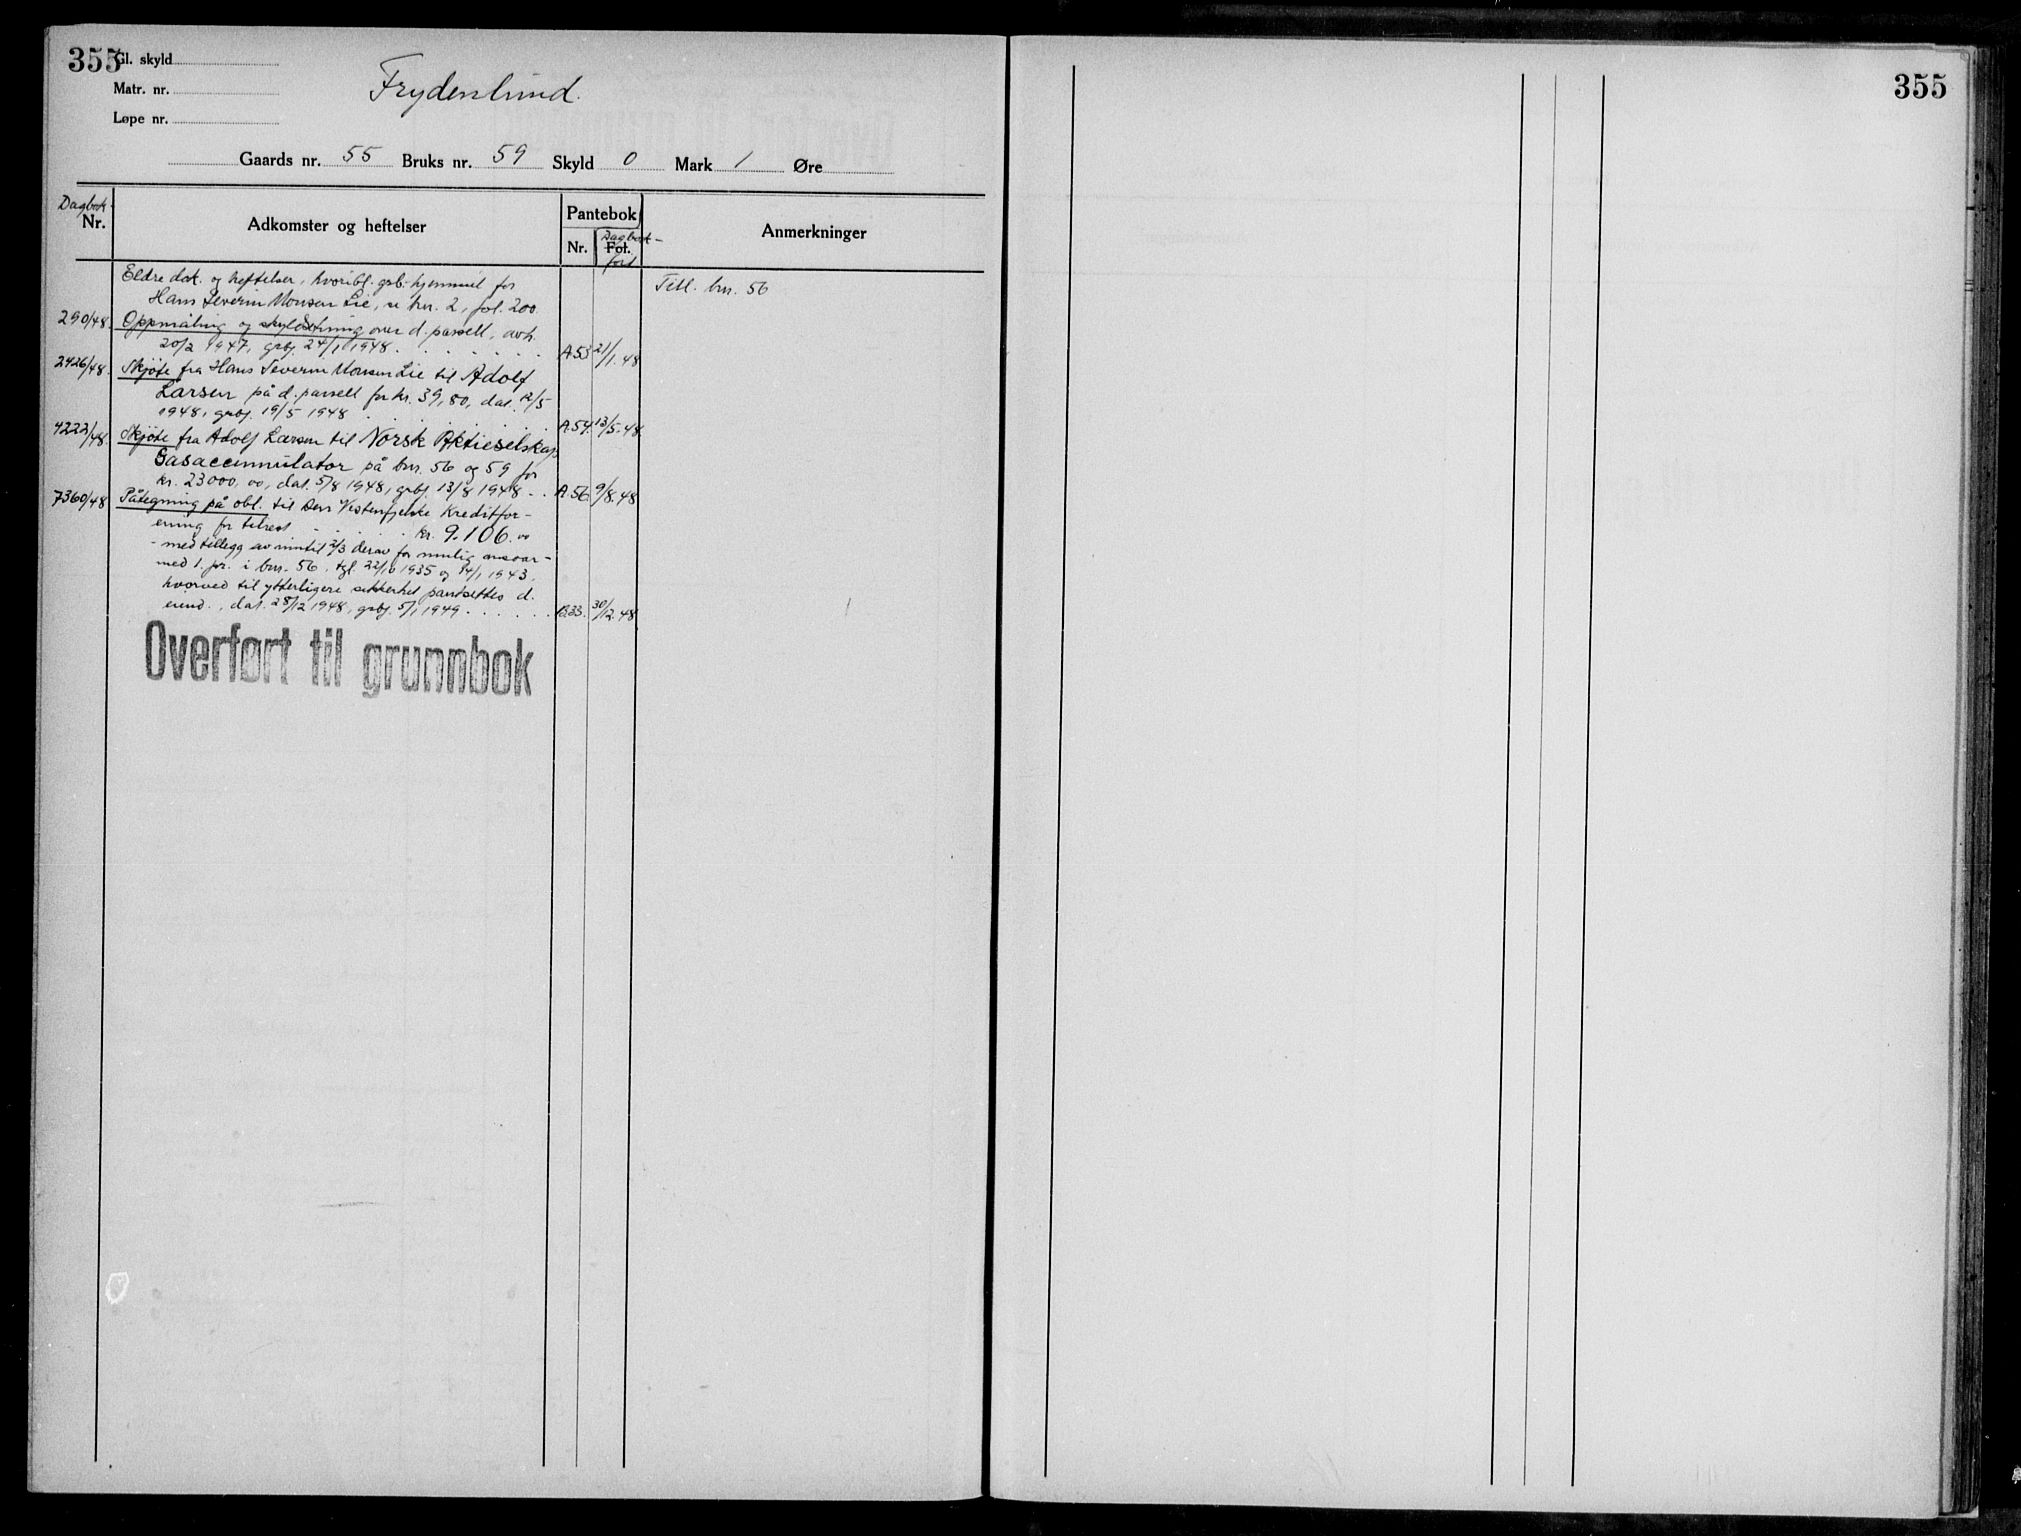 355 Gl. skyld
Matr. nr.
Løpe nr.
Frydenlund.
Gaards nr. 55 Bruks nr. 59 Skyld 0 Mark 1 Øre
Dagbok-
Nr.
Adkomster og heftelser
Pantebok
Nr. Fol.
Dagbok-
ført
Anmerkninger
Eldre dok. og heftelser, hvoribl. grb.-hjemmel for
Hans Severin Monsen Lie, se bnr. 2, fol. 200
Till. bnr. 56
290/48. Oppmåling og skyldsetning over d. parsell, avh.
20/2 1947, grbj. 24/1 1948. A53 21/1.48
2426/48. Skjøte fra Hans Severin Monsen Lie til Adolf
Larsen på d. parsell for kr. 39,80, dat. 12/5
1948, grbj. 19/5 1948 A.54. 13/5.48.
4222/48. Skjøte fra Adolf Larsen til Norsk Aktieselskap
Gasaccumulator på bnr. 56 og 59 for
kr. 23000,00, dat. 5/8 1948, grbj. 13/8 1948 A.56. 9/8.48
7360/48 Påtegning på obl. til Den Vestenfjelske Kreditfor-
ening for tilrest kr. 9.106.00
- med tillegg av inntil 2/3 derav for mulig ansvar -
med 1. pr. i bnr. 56, tgl. 22/10 1935 og 14/1 1943,
hvorved til ytterligere sikkerhet pantsettes d.
eiend., dat. 28/12 1948, grbj. 5/1 1949 B33. 30/12.48.
Overført til grunnbok
355